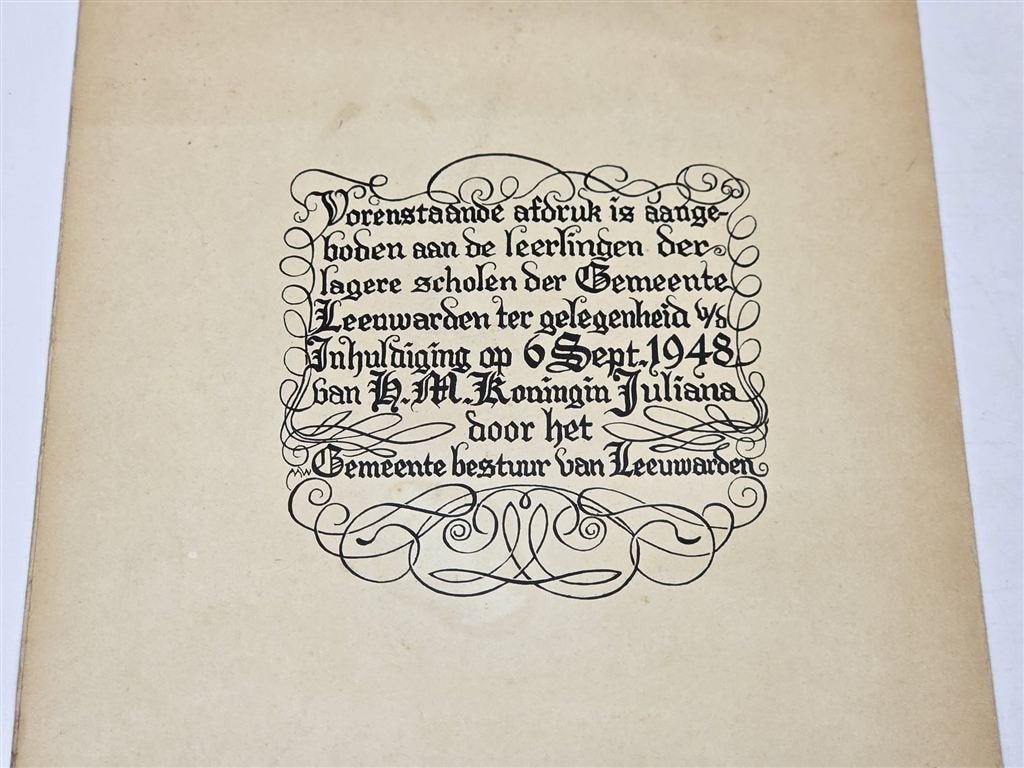 Vorenstaande afdruk is aange-
boden aan de leerlingen der
lagere scholen der Gemeente
Leeuwarden ter gelegenheid v/d
Inhuldiging op 6 Sept. 1948
van H.M. Koningin Juliana
door het
Gemeente bestuur van Leeuwarden